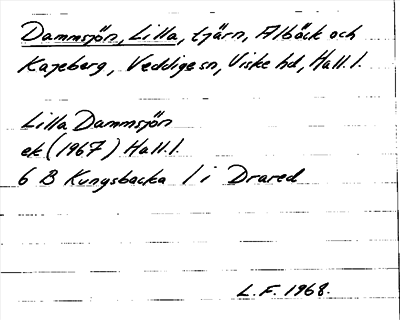 Dammsjön, Lilla, tjärn, Alböck och
Kajeberg, Veddige sn, Viske hd, Hall. l.
Lilla Dammsjön
ek (1967) Hall. l.
6 B Kungsbacka 1 i Drared
L.F. 1968.